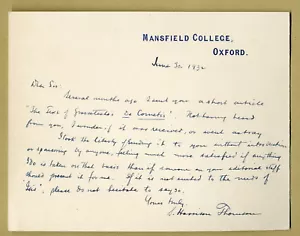 MANSFIELD COLLEGE,
OXFORD.
June 30 1932
Dear Sir:
Several months ago I sent you a short article
"The Text of Grosseteste's De Cometis". Not having heard
from you, I wonder if it was received, or went astray
I took the liberty of sending it to you without introduction
or sponsoring by anyone, feeling much more satisfied if anything
I do is taken on that basis than if someone on your editorial staff
should present it for me. If it is not suited to the needs of
"Isis", please do not hesitate to say so.
Yours truly,
S. Harrison Thomson